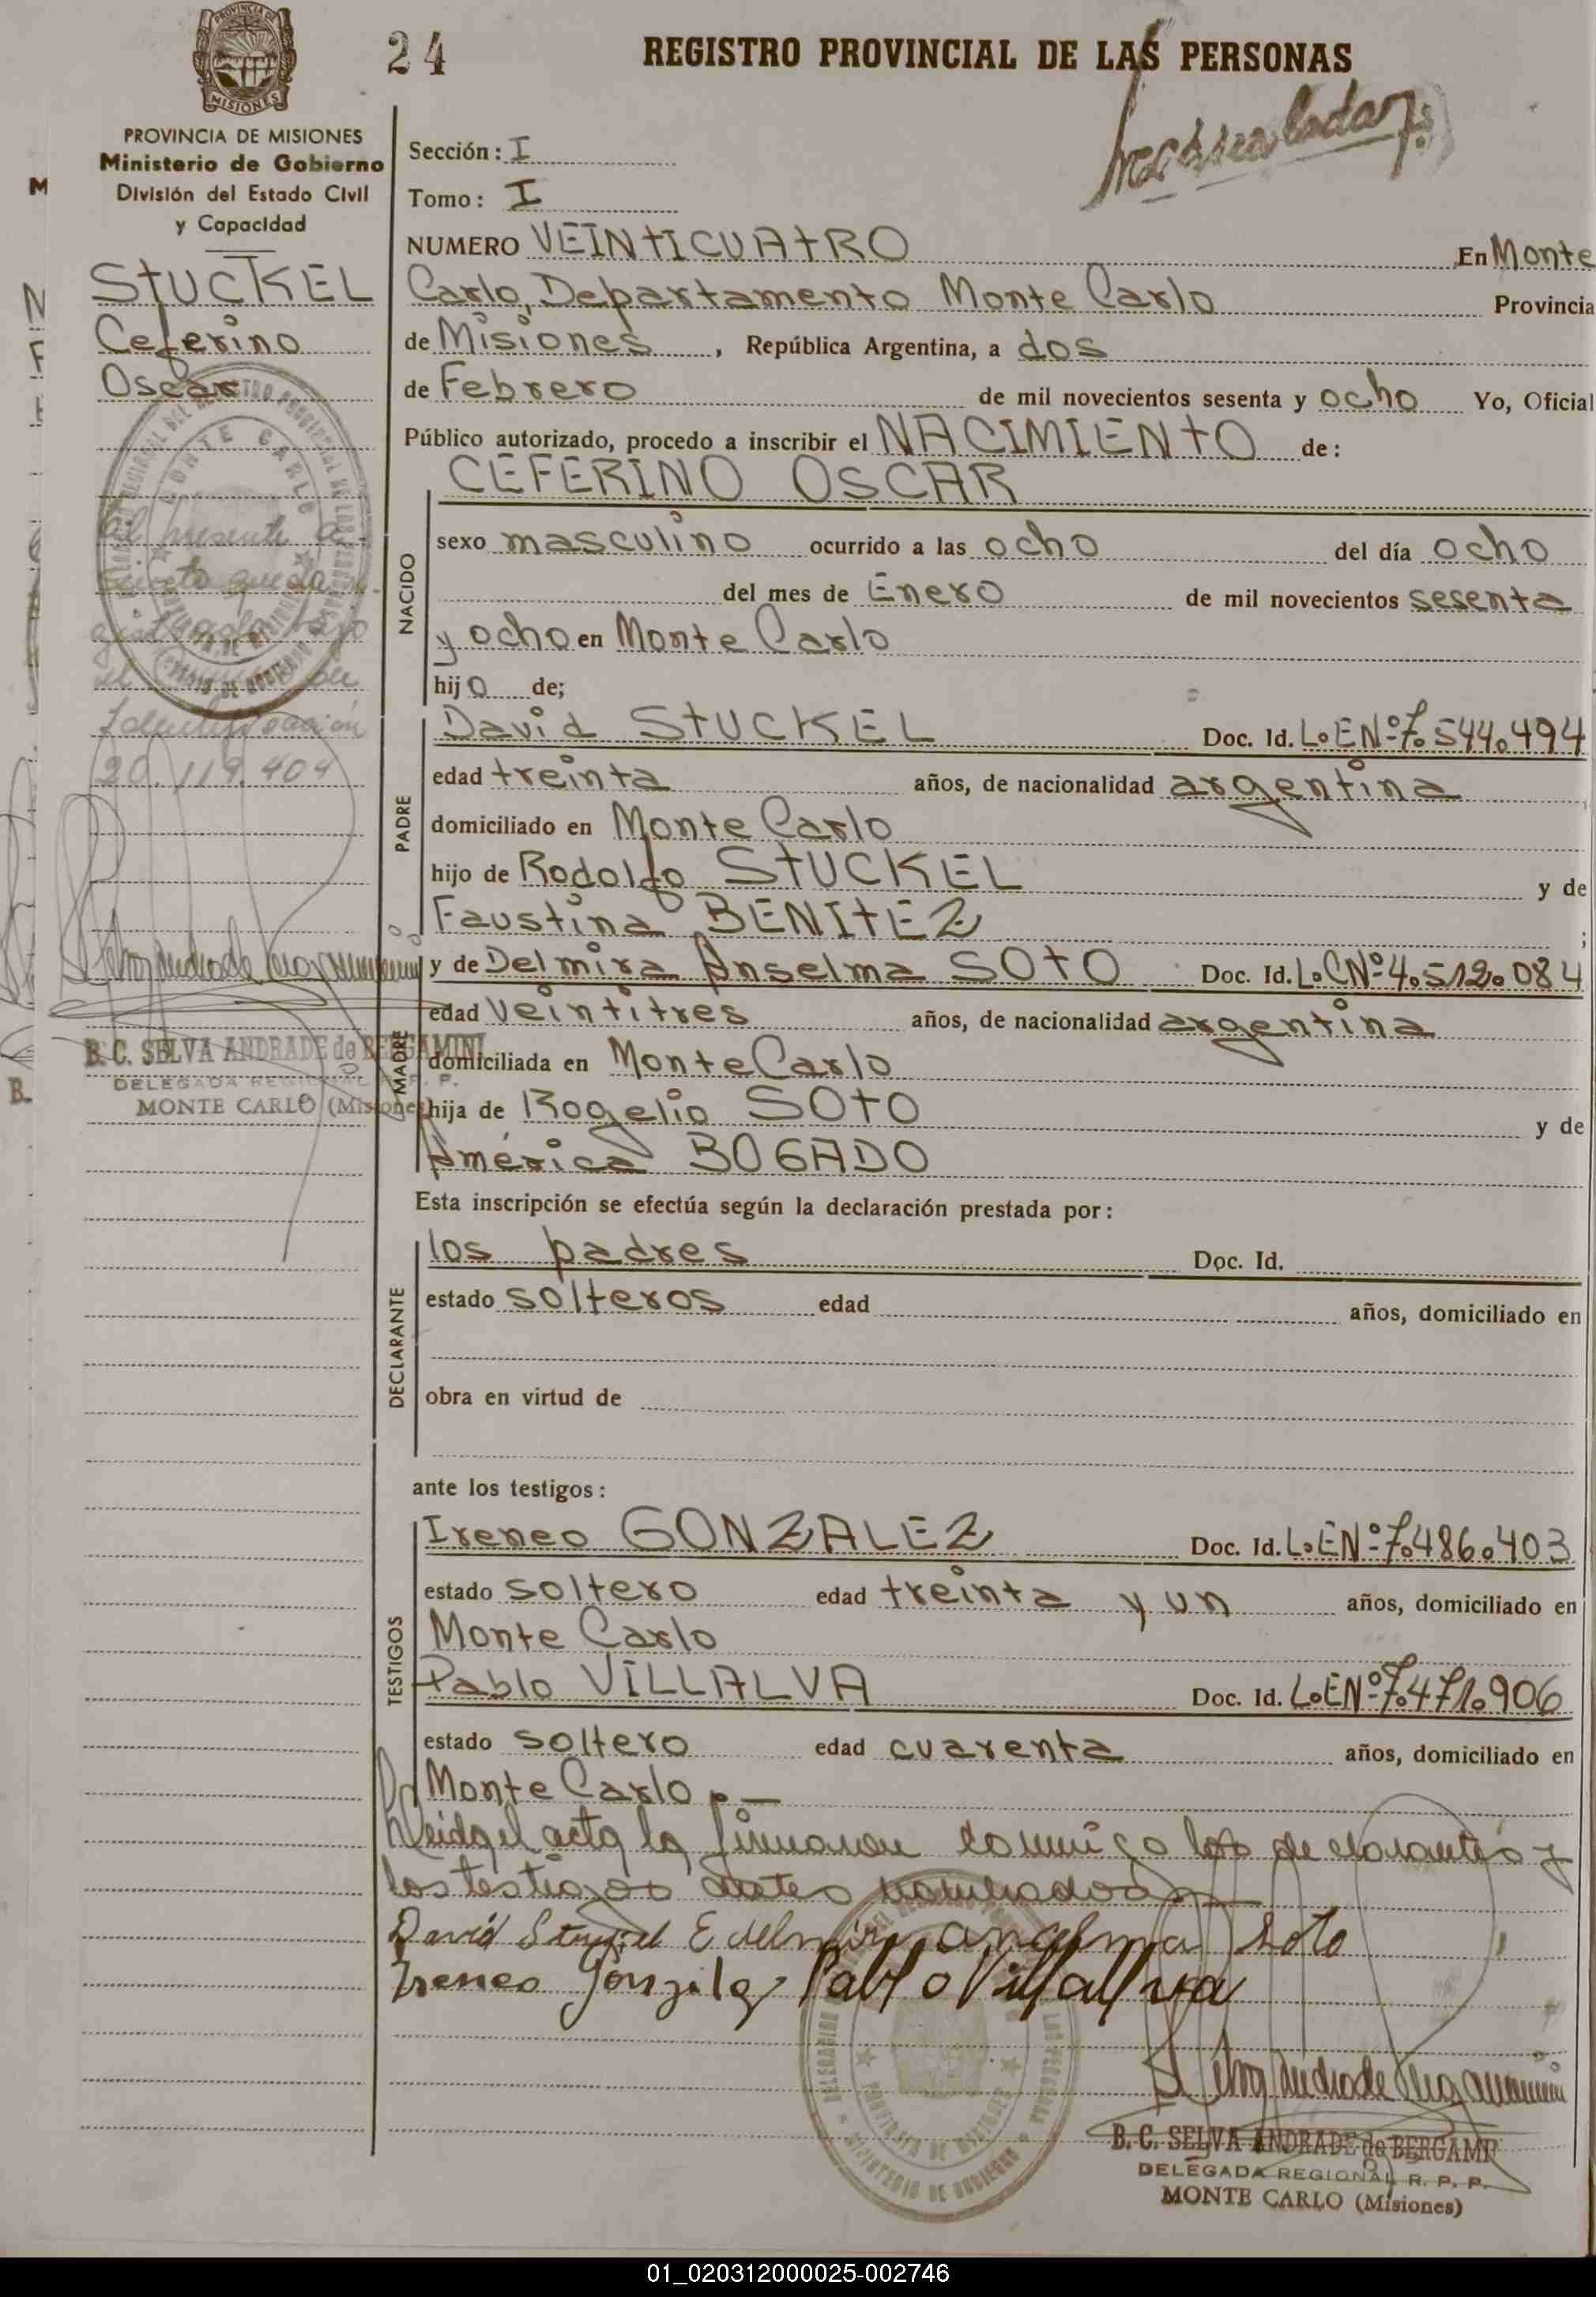 PROVINCIA DE
MISIONES
24
REGISTRO PROVINCIAL DE LAS PERSONAS
PROVINCIA DE MISIONES
Ministerio de Gobierno
División del Estado Civil
y Capacidad
STUCKEL
Ceferino
Oscar
El presente a
queda
Identificación
20.119.404
B. C. SELVA ANDRADE de BERGAMINI
DELEGADA REGIONAL R. P. P.
MONTE CARLO (Misiones)
Sección: I
Tomo: I
NUMERO VEINTICUATRO En Monte
Carlo, Departamento Monte Carlo Provincia
de Misiones, República Argentina, a dos
de Febrero de mil novecientos sesenta y ocho Yo, Oficial
Público autorizado, procedo a inscribir el NACIMIENTO de:
NACIDO
CEFERINO OSCAR
sexo masculino ocurrido a las ocho del día ocho
del mes de Enero de mil novecientos sesenta
y ocho en Monte Carlo
hijo de;
PADRE
David STUCKEL Doc. Id. L.E.Nº 7.544.494
edad treinta años, de nacionalidad argentina
domiciliado en Monte Carlo
hijo de Rodolfo STUCKEL y de
Faustina BENITEZ ;
MADRE
y de Delmira Anselma SOTO Doc. Id. L.C.Nº 4.512.084
edad veintitres años, de nacionalidad argentina
domiciliada en Monte Carlo
hija de Rogelio SOTO y de
América BOGADO
Esta inscripción se efectúa según la declaración prestada por:
DECLARANTE
los padres Doc. Id.
estado solteros edad años, domiciliado en
obra en virtud de
ante los testigos:
TESTIGOS
Ireneo GONZALEZ Doc. Id. L.E.Nº 7.486.403
estado soltero edad treinta y un años, domiciliado en
Monte Carlo
Pablo VILLALVA Doc. Id. L.E.Nº 7.471.906
estado soltero edad cuarenta años, domiciliado en
Monte Carlo.—
Leida el acta la firmaron conmigo los declarantes y
los testigos antes nombrados
David Stuckel Edelmira anselma Soto
Ireneo Gonzalez Pablo Villalva
B. C. SELVA ANDRADE de BERGAMI
DELEGADA REGIONAL R. P. P.
MONTE CARLO (Misiones)
01_020312000025-002746